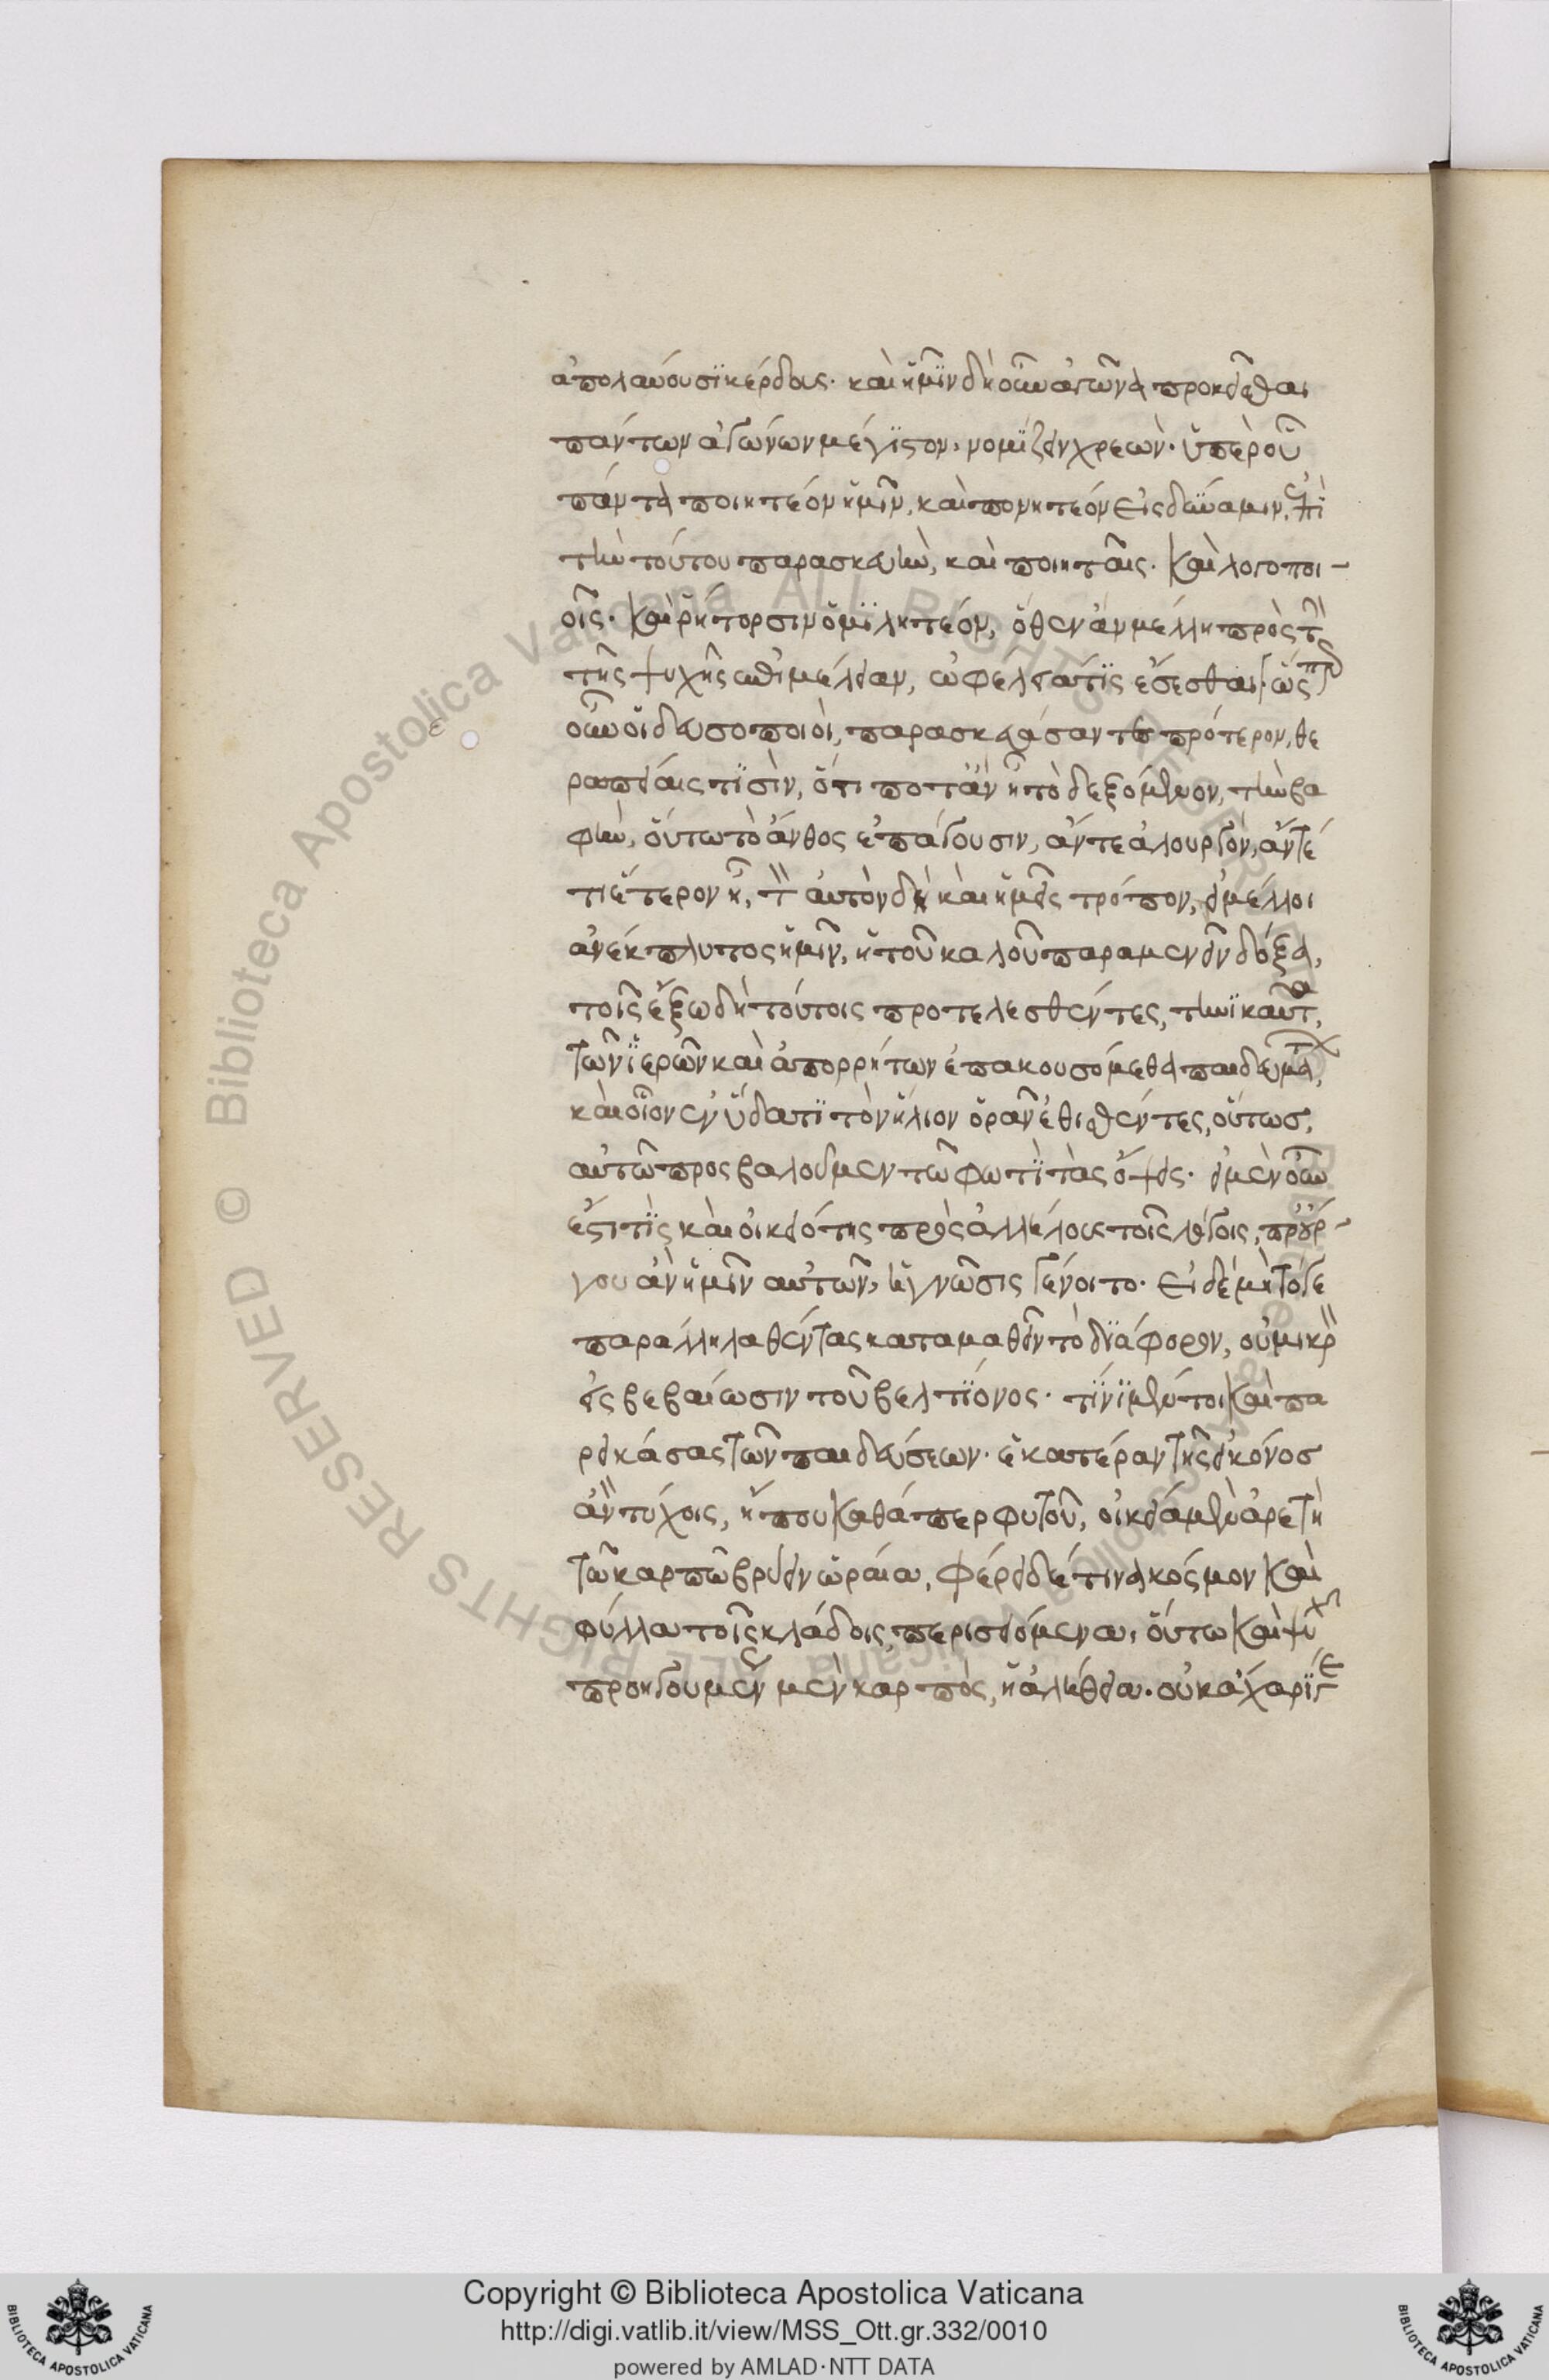 ἀπολαύουσϊ κέρδους. καὶ ἡμῖν δὴ οὖν ἀγῶνα προκεῖσθαι
πάντων ἀγώνων μέγϊστον, νομϊζειν χρεὼν. ὑπὲρ οὗ
πάντα ποιητέον ἡμῖν, καὶ πονητέον εἰς δύναμιν, ἐπὶ
τὴν τούτου παρασκευὴν, καὶ ποιηταῖς. καὶ λογοποι-
οῖς. καὶ ῥήτορσιν ὁμϊλητέον, ὅθεν ἂν μέλλη πρὸς τὴν
τῆς ψυχῆς ἐπιμέλειαν, ὠφέλειά τϊς ἔσεσθαι. ὥσπερ
οὖν οἱ δευσοποιοὶ, παρασκευάσαντες πρότερον, θε
ραπείαις τϊσὶν, ὅτι ποτ' ἂν ᾖ τὸ δεξόμενον, τὴν βα
φὴν, οὕτω τὸ ἄνθος ἐπάγουσιν, ἄν τε ἁλουργὸν, ἄν τέ
τι ἕτερον ᾖ, τὸν αὐτὸν δὴ καὶ ἡμεῖς τρόπον, εἰ μέλλοι
ἀνέκπλυτος ἡμῖν, ἡ τοῦ καλοῦ παραμενεῖν δόξα,
τοῖς ἔξω δὴ τούτοις προτελεσθέντες, τηνϊκαῦτα,
τῶν ἱερῶν καὶ ἀπορρήτων ἐπακουσόμεθα παιδευμάτων,
καὶ οἷον ἐν ὕδατϊ τὸν ἥλιον ὁρᾶν ἐθισθέντες, οὕτως,
αὐτῶ προσβαλοῦμεν τῶ φωτϊ τὰς ὄψεις. εἰ μὲν οὖν
ἔστι τϊς καὶ οἰκειότης πρὸς ἀλλήλους τοῖς λόγοις, προὔρ-
γου ἂν ἡμῖν αὐτῶν, ἡ γνῶσις γένοιτο. εἰ δὲ μὴ τό γε
παράλληλα θέντας καταμαθεῖν τὸ δϊάφορον, οὐ μικρὸν
εἰς βεβαίωσιν τοῦ βελτϊονος. τϊνϊ μέντοι καὶ πα
ρεικάσας τῶν παιδεύσεων. ἑκατέραν τῆς εἰκόνος
ἂν τύχοις, ἤ που καθάπερ φυτοῦ, οἰκεία μὲν ἀρετὴ
τῶ καρπῶ βρύειν ὡραίω, φέρει δέ τινα κόσμον καὶ
φύλλα τοῖς κλάδοις περισειόμενα, οὕτω καὶ ψυχῆ
προηγουμένως μὲν καρπὸς, ἡ ἀλήθεια. οὐκ ἄχαρϊ γε
Copyright © Biblioteca Apostolica Vaticana
http://digi.vatlib.it/view/MSS_Ott.gr.332/0010
powered by AMLAD·NTT DATA